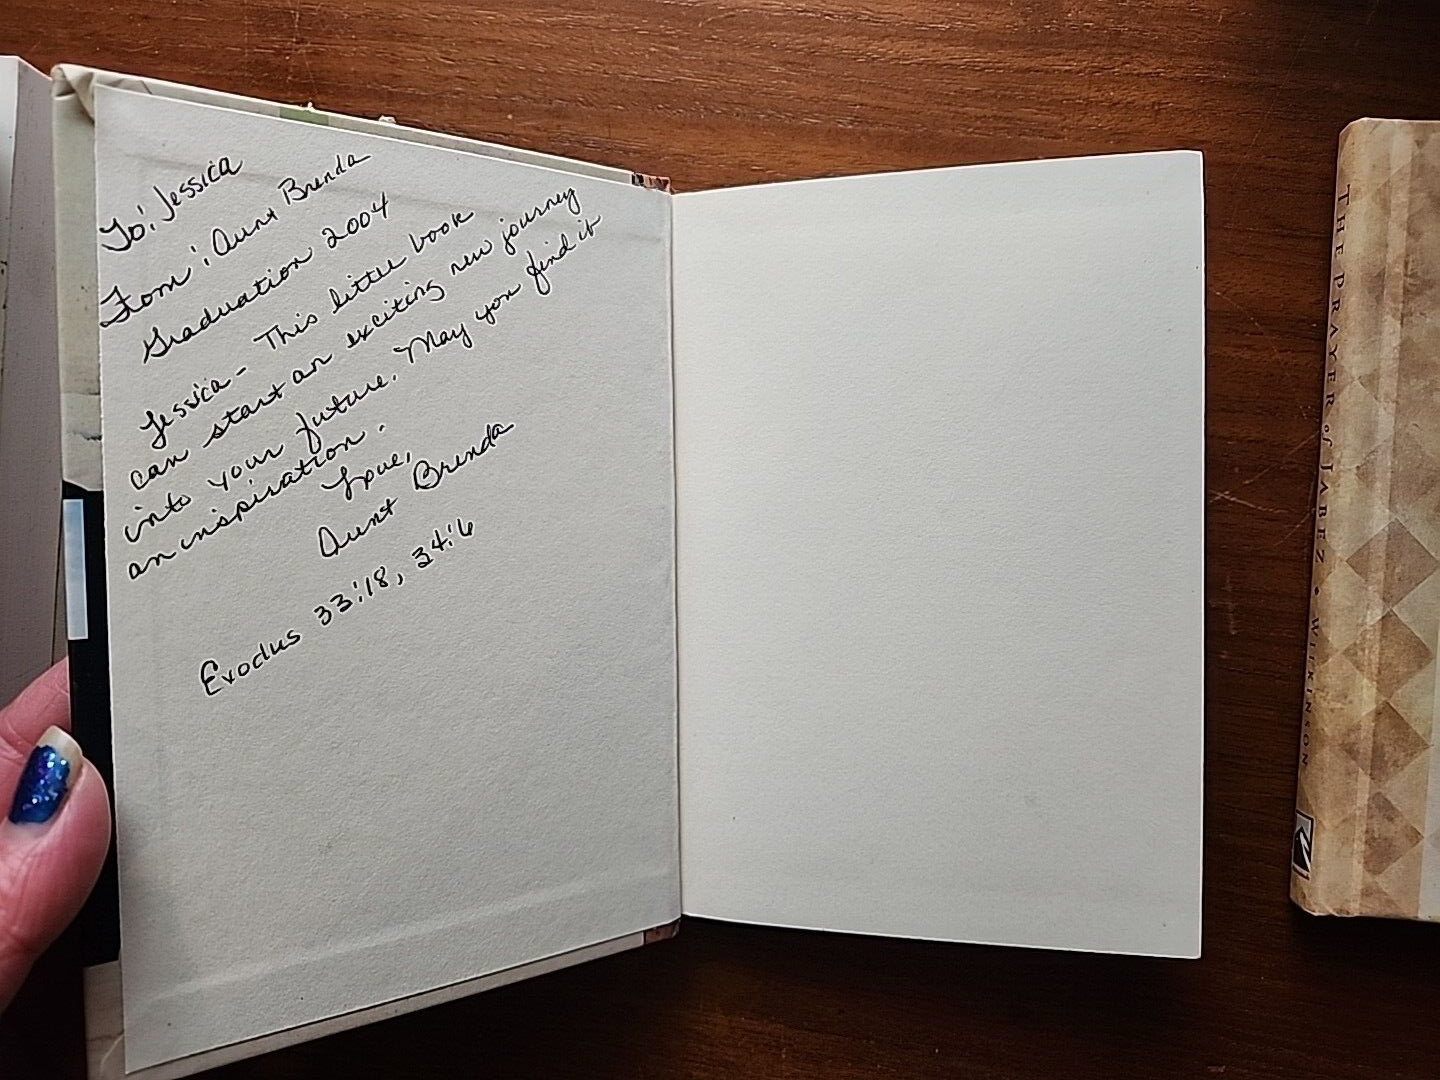 To: Jessica
From: Aunt Brenda
Graduation 2004
Jessica - This little book
can start an exciting new journey
into your future. May you find it
an inspiration.
Love,
Aunt Brenda
Exodus 33:18, 34:6
THE PRAYER of JABEZ • WILKINSON